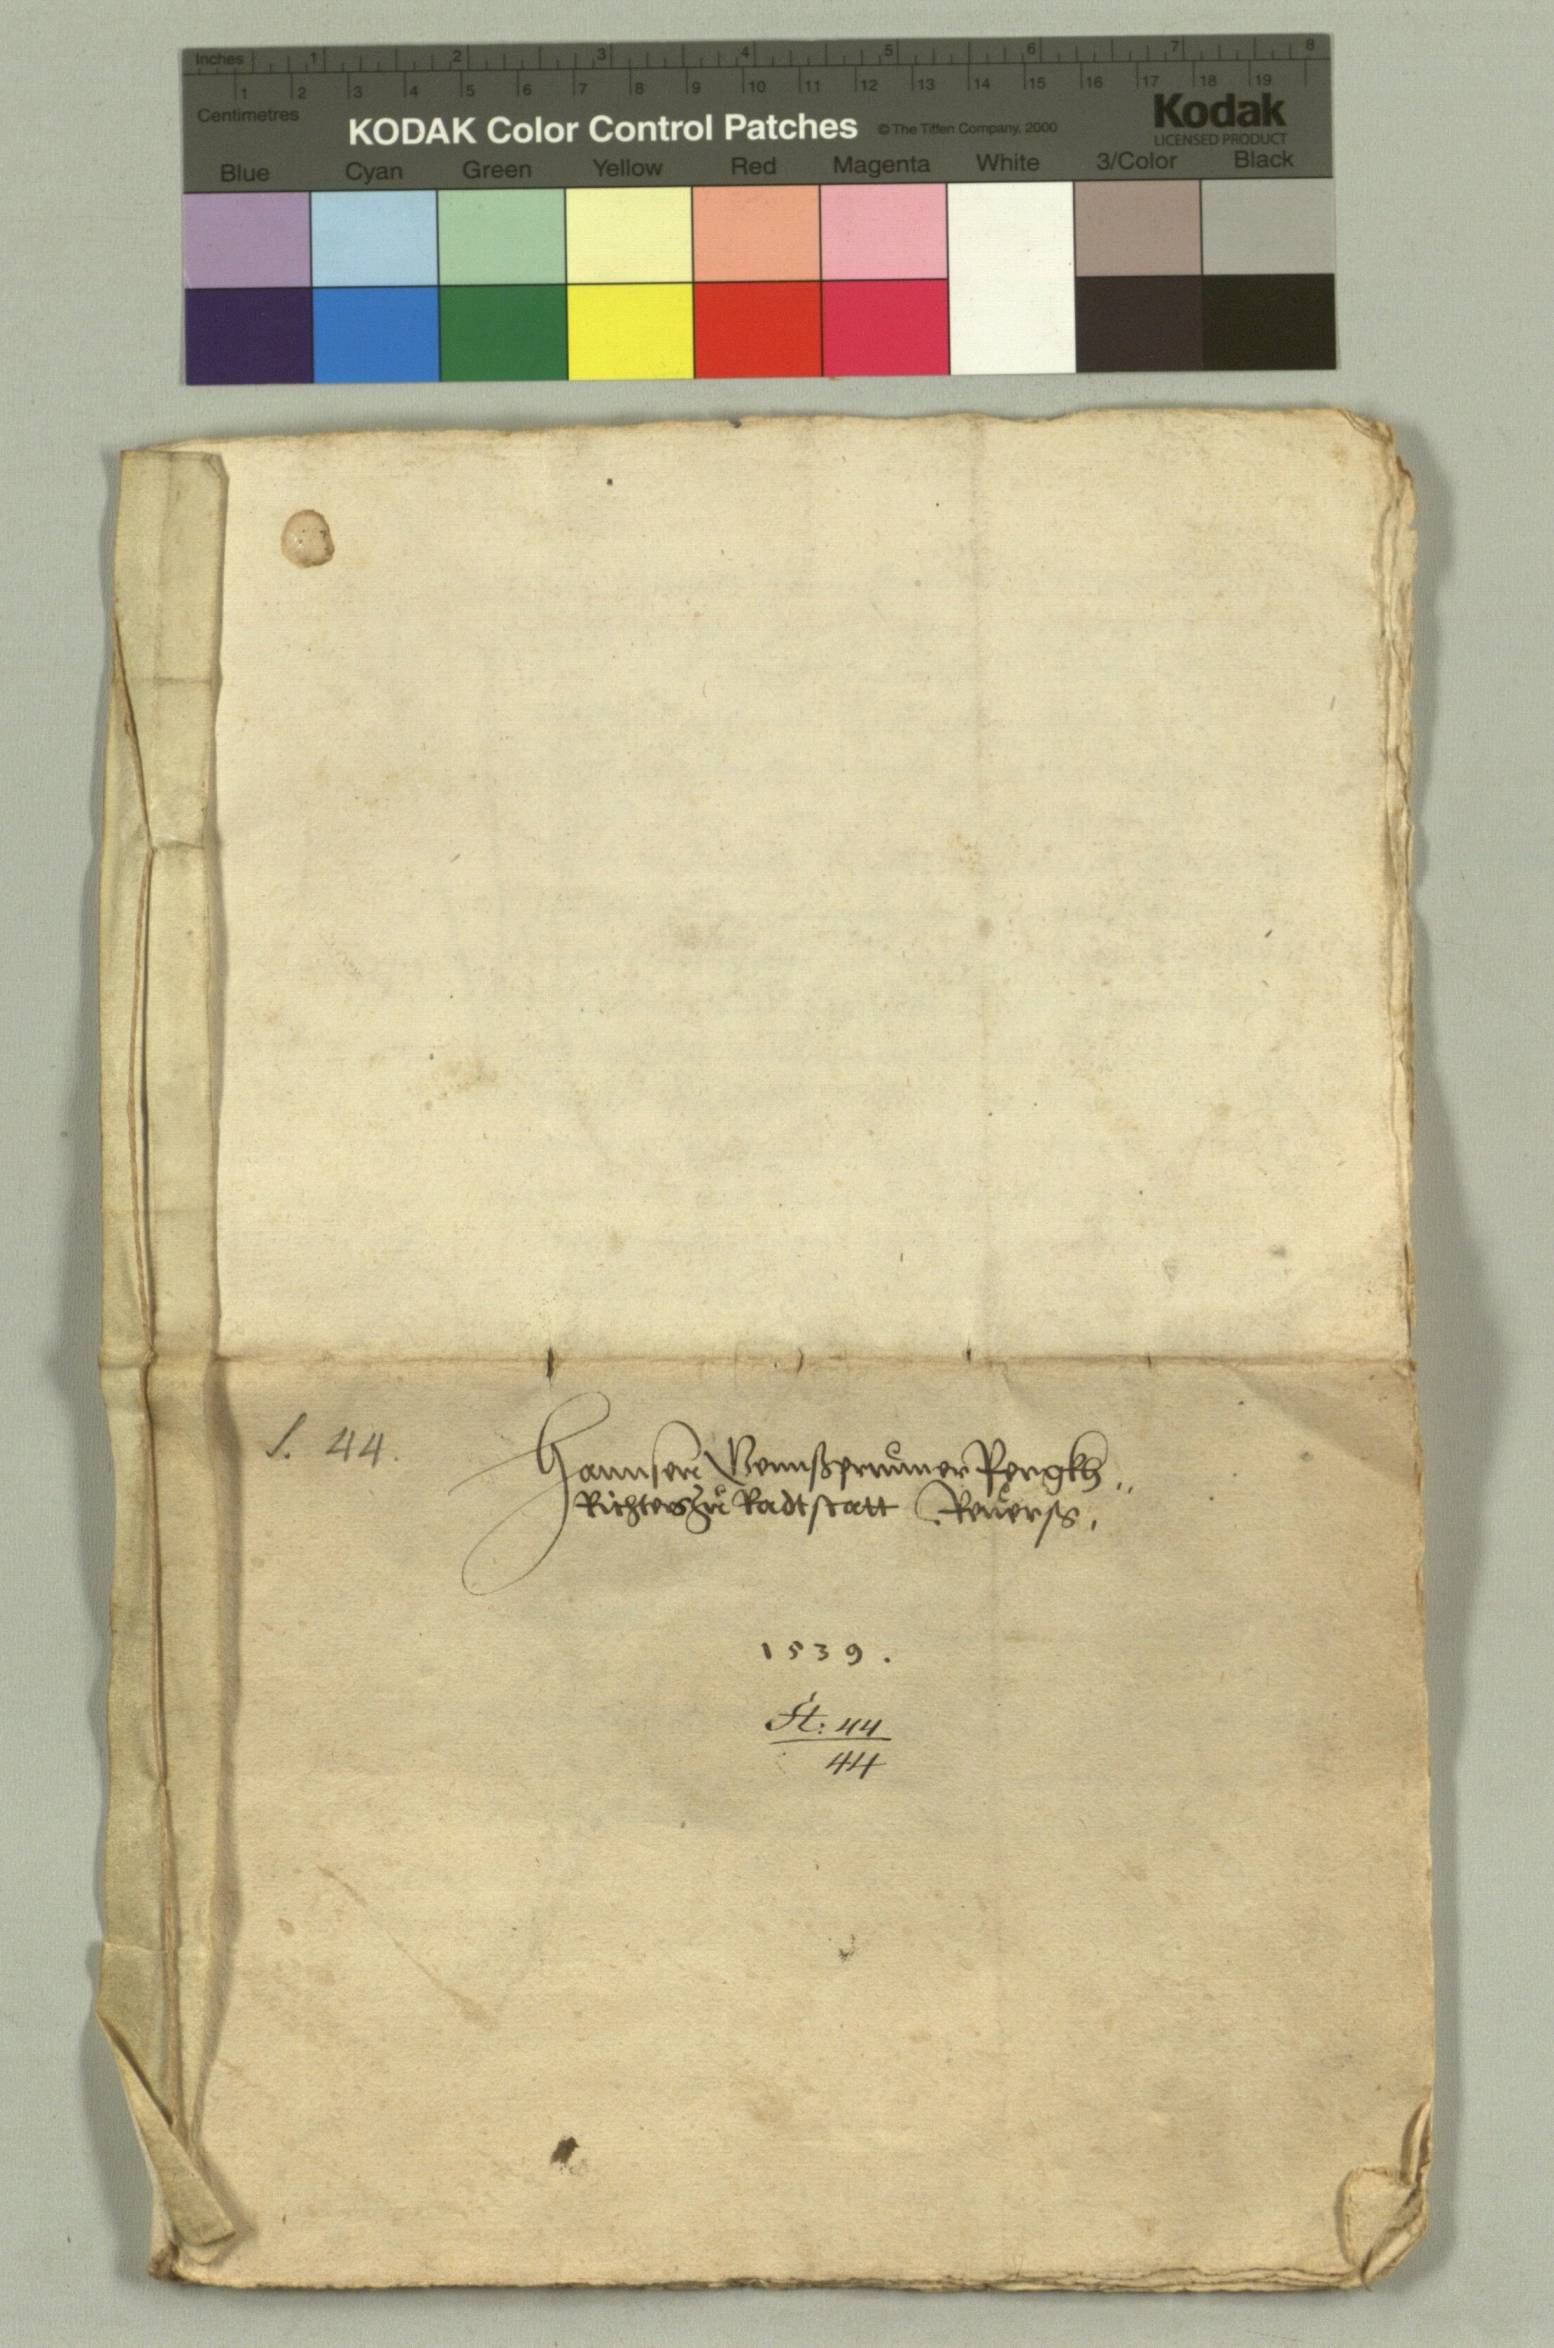 Inches 1 2 3 4 5 6 7 8
1 2 3 4 5 6 7 8 9 10 11 12 13 14 15 16 17 18 19
Centimetres
KODAK Color Control Patches © The Tiffen Company, 2000 Kodak
LICENSED PRODUCT
Blue Cyan Green Yellow Red Magenta White 3/Color Black
44.
Hannsen Pergkh
Richters zů Radtstatt Reuerss,
1539.
St: 44
44